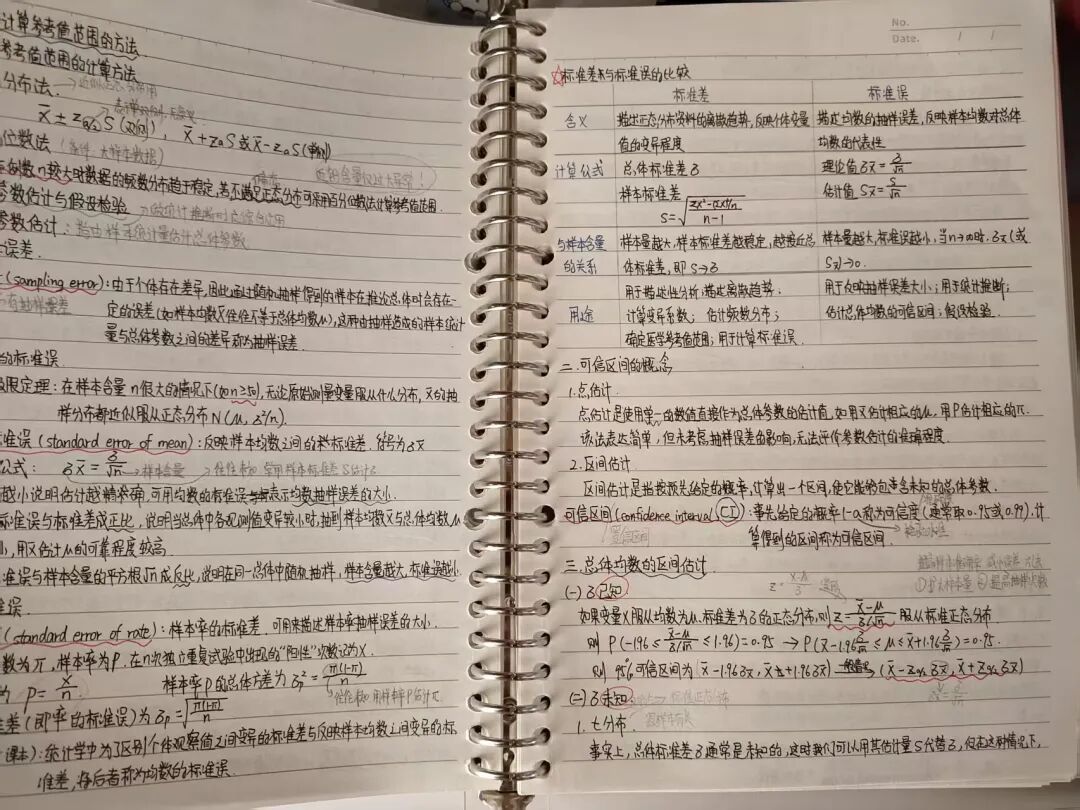 计算参考值范围的方法
参考值范围的计算方法
分布法.
X̄ ± Zα/2 S (双侧), X̄ + ZαS 或 X̄ - ZαS (单侧)
位数法 (条件: 大样本数据)
例数n较大时数据的频数分布趋于稳定, 若不满足正态分布还可采用百分位数法计算参考值范围.
参数估计与假设检验
参数估计: 指由样本统计量估计总体参数
误差.
(sampling error): 由于个体存在差异, 因此通过随机抽样得到的样本在推论总体时会存在一
定的误差 (如样本均数X̄往往不等于总体均数μ), 这种由抽样造成的样本统计
量与总体参数之间的差异称为抽样误差.
的标准误
极限定理: 在样本含量n很大的情况下(如n≥50), 无论原始测量变量服从什么分布, X̄的抽
样分布都近似服从正态分布N(μ, σ²/n).
准误 (standard error of mean): 反映样本均数之间的 标准差. 符号为σX̄
公式: σX̄ = σ/√n → 样本含量 → 往往未知, 常用样本标准差S估计σ
越小说明估计越精确, 可用均数的标准误 表示均数抽样误差的大小.
标准误与标准差成正比, 说明当总体中各观测值变异较小时, 抽到样本均数X̄与总体均数μ
小, 用X̄估计μ的可靠程度较高.
准误与样本含量的平方根√n成反比, 说明在同一总体中随机抽样, 样本含量越大, 标准误越小.
准误.
(standard error of rate): 样本率的标准差. 可用来描述样本率抽样误差的大小.
数为π, 样本率为P. 在n次独立重复试验中出现的"阳性"次数记为X.
P = X/n. 样本率P的总体方差为 σp² = π(1-π)/n
往往未知, 用样本率P估计π.
准差 (即率的标准误) 为 σp = √(π(1-π)/n)
课本): 统计学中为了区别个体观察值之间变异的标准差与反映样本均数之间变异的标
准差, 将后者称为均数的标准误.
No.
Date. / /
☆标准差与标准误的比较
标准差 标准误
含义 描述正态分布资料的离散趋势, 反映个体变量 描述均数的抽样误差, 反映样本均数对总体
值的变异程度 均数的代表性
计算公式 总体标准差σ 理论值σX̄ = σ/√n
样本标准差 估计值SX̄ = S/√n
S = √((ΣX²-(ΣX)²/n)/(n-1))
与样本含量 样本量越大, 样本标准差越稳定, 越接近总 样本量越大, 标准误越小, 当n→∞时, σX̄(或
的关系 体标准差, 即S→σ SX̄)→0.
用于描述性分析: 描述离散趋势. 用于反映抽样误差大小; 用于统计推断;
用途 计算变异系数; 估计频数分布; 估计总体均数的可信区间; 假设检验.
确定医学参考值范围; 用于计算标准误.
二. 可信区间的概念
1. 点估计.
点估计是使用单一的数值直接作为总体参数的估计值, 如用X̄估计相应的μ, 用P估计相应的π.
该法表达简单, 但未考虑抽样误差的影响, 无法评价参数估计的准确程度.
2. 区间估计.
区间估计是指按预先给定的概率, 计算出一个区间, 使它能够包含未知的总体参数.
可信区间(confidence interval, CI): 事先给定的概率1-α称为可信度(通常取0.95或0.99). 计
置信区间 算得到的区间称为可信区间.
三. 总体均数的区间估计.
(一) σ已知
①扩大样本量
如果变量X服从均数为μ. 标准差为σ的正态分布, 则 Z = (X̄-μ)/(σ/√n) 服从标准正态分布
则 P(-1.96 ≤ (X̄-μ)/(σ/√n) ≤ 1.96) = 0.95 → P(X̄-1.96σ/√n ≤ μ ≤ X̄+1.96σ/√n) = 0.95.
则 95%可信区间为 (X̄-1.96σX̄, X̄+1.96σX̄) → (X̄-Zα/2 σX̄, X̄+Zα/2 σX̄)
(二) σ未知
1. t分布
事实上, 总体标准差σ通常是未知的, 这时我们可以用其估计量S代替σ, 但在这种情况下,